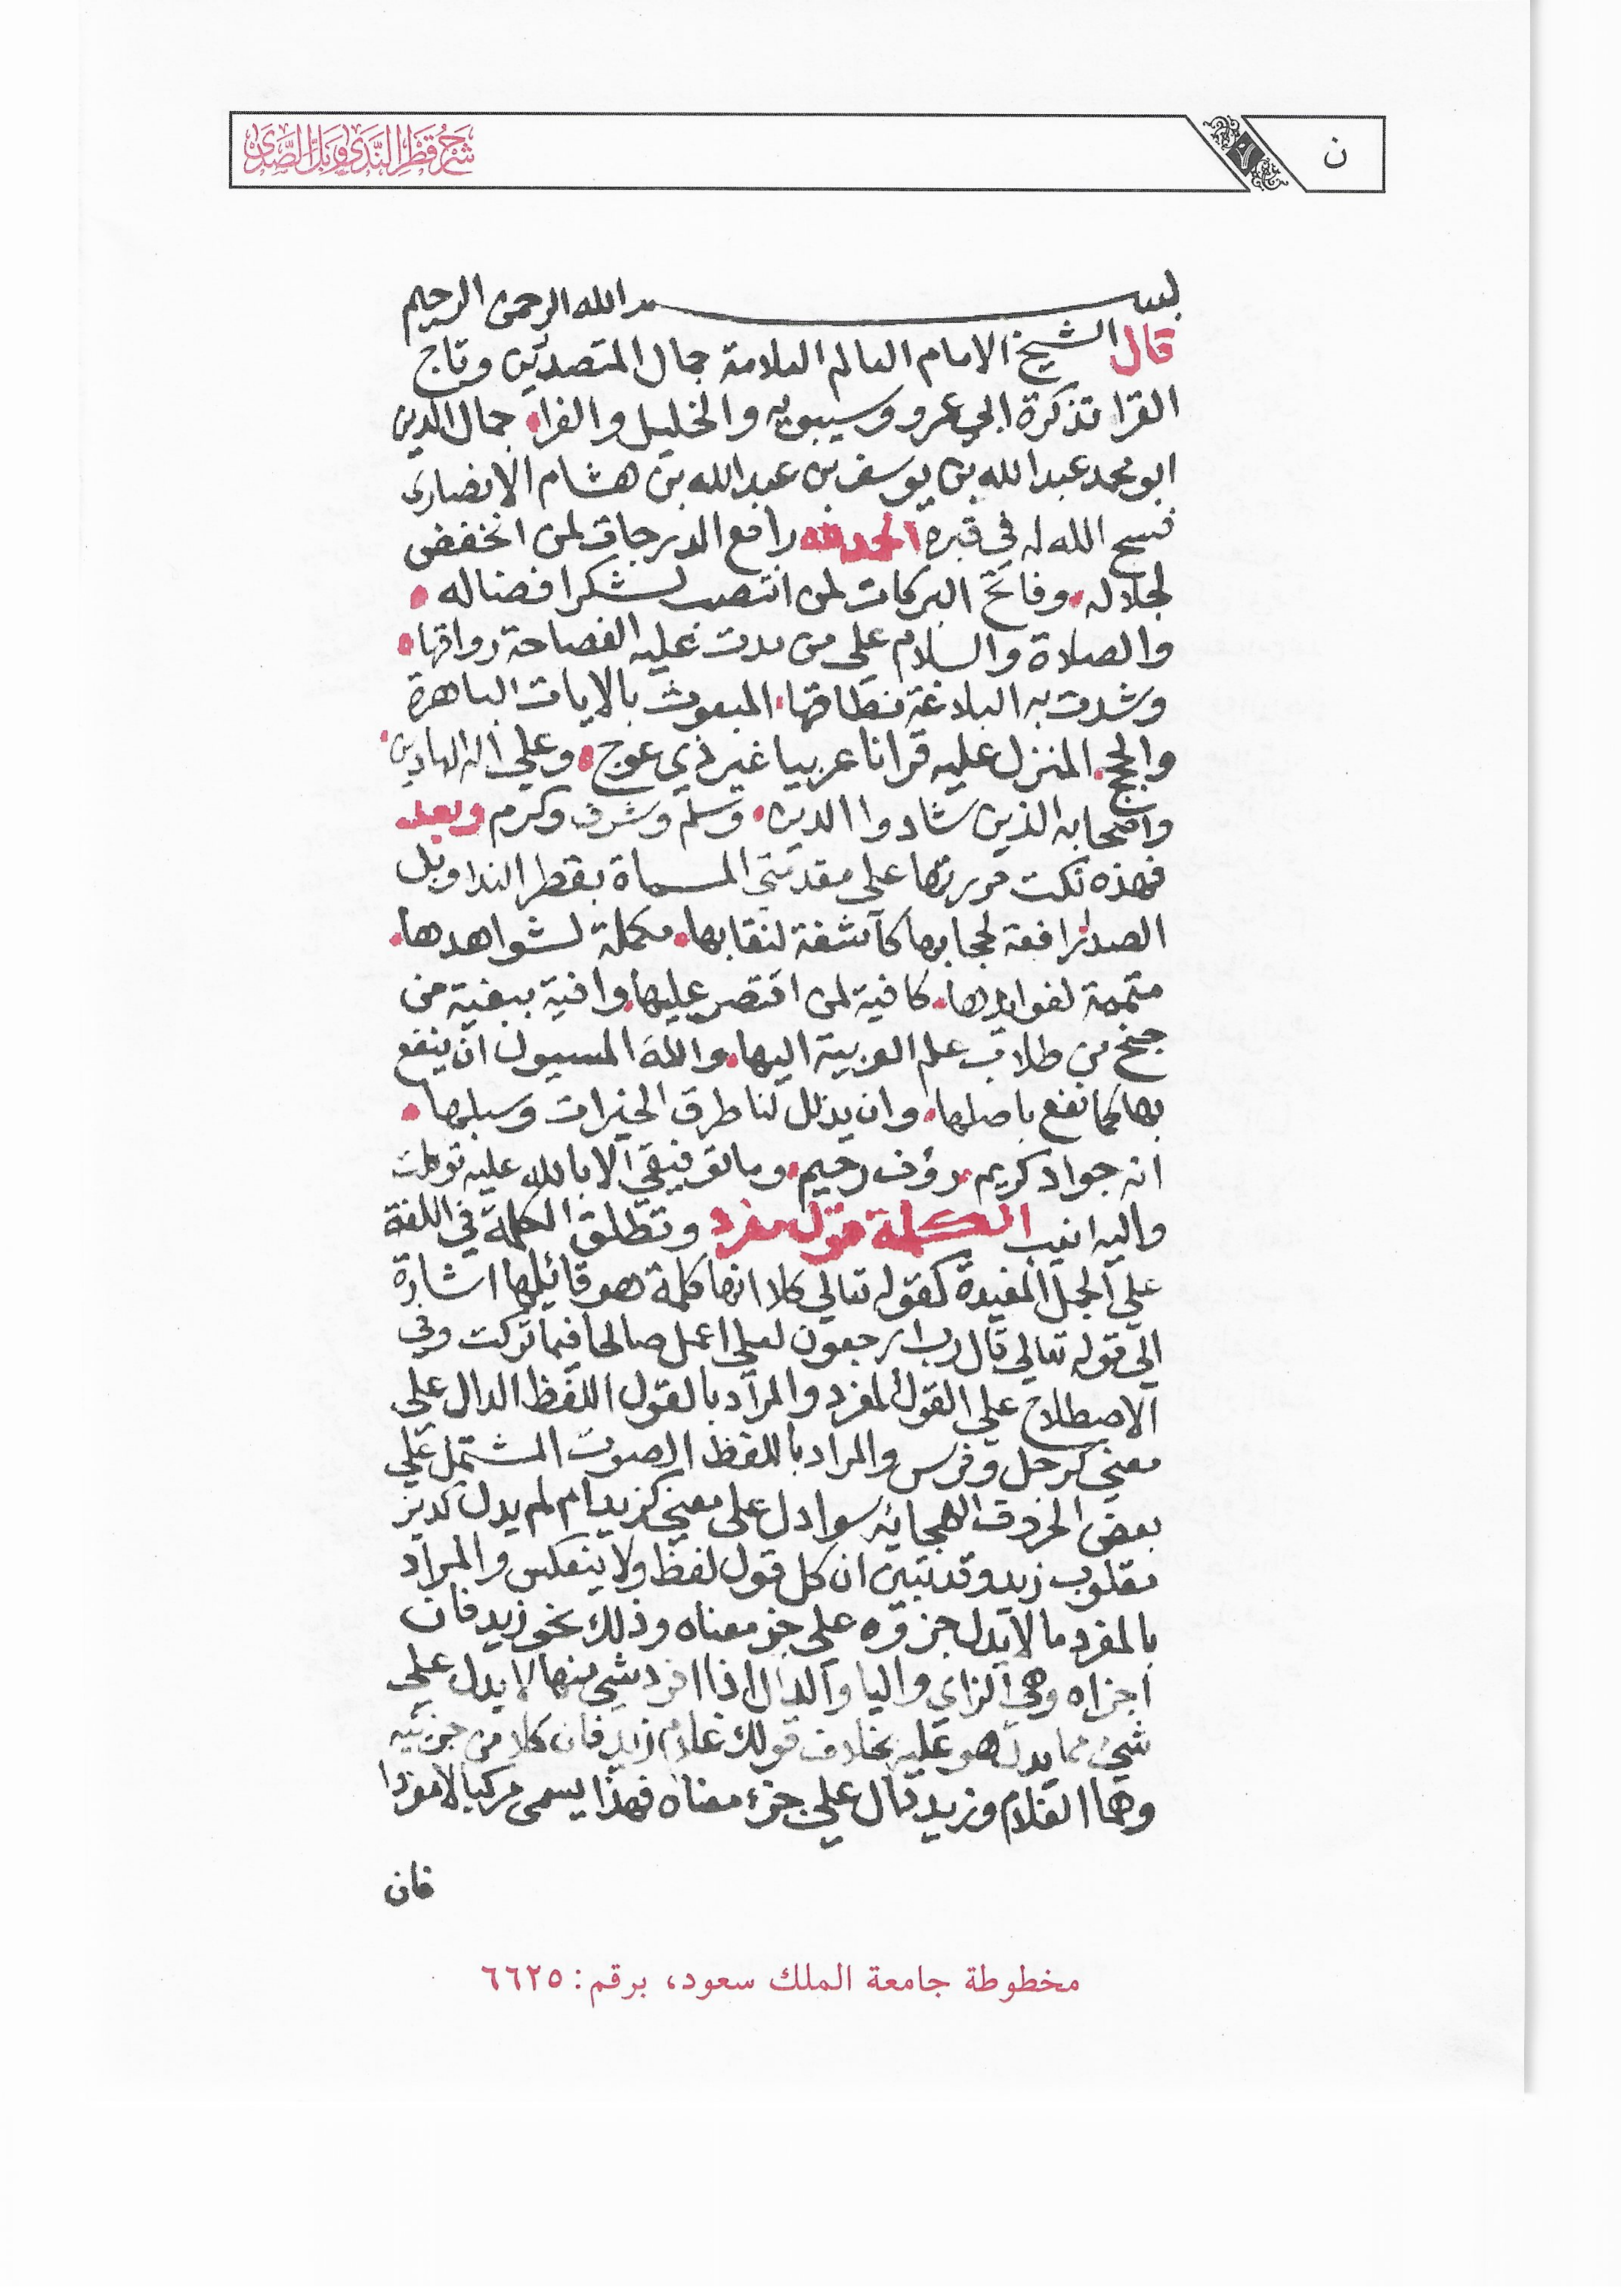 ن
شرح قطر الندى وبل الصدى
بسم الله الرحمن الرحيم
قال الشيخ الامام العالم العلامة جمال المتصدرين وتاج
القرا تذكرة ابي عمرو وسيبويه والخليل والفراء جمال الدين
ابو محمد عبد الله بن يوسف بن عبد الله بن هشام الانصاري
فسح الله له في قبره الحمد لله رافع الدرجات لمن انخفض
لجلاله وفاتح البركات لمن انتصب لشكر افضاله
والصلاة والسلام علي من مدت عليه الفصاحة رواقها
وشدت به البلاغة نطاقها المبعوث بالايات الباهرة
والحجج المنزل عليه قرانا عربيا غير ذي عوج وعلي اله الهادين
واصحابه الذين شادوا الدين وسلم وشرف وكرم وبعد
فهذه نكت حررتها على مقدمتي المسماة بقطر الندا وبل
الصدا رافعة لحجابها كاشفة لنقابها مكملة لشواهدها
متممة لفوايدها كافية لمن اقتصر عليها وافية ببغية من
جنح من طلاب علم العربية اليها والله المسيول ان ينفع
بها كما نفع باصلها وان يذلل لنا طرق الخيرات وسبلها
انه جواد كريم رؤف رحيم وما توفيقي الا بالله عليه توكلت
واليه انيب الكلمة قول مفرد وتطلق الكلمة في اللغة
علي الجمل المفيدة كقوله تعالي كلا انها كلمة هو قائلها اشارة
الي قوله تعالي قال رب ارجعون لعلي اعمل صالحا فيما تركت وفي
الاصطلاح علي القول المفرد والمراد بالقول اللفظ الدال علي
معني كرجل وفرس والمراد باللفظ الصوت المشتمل علي
بعض الحروف الهجائيه سوا دل على معني كزيد ام لم يدل كديز
مقلوب زيد وقد تبين ان كل قول لفظ ولا ينعكس والمراد
بالمفرد ما لا يدل جزوه علي جز معناه وذلك نحو زيد فان
اجزاه وهي الزاي واليا والدال اذا افرد شي منها لا يدل علي
شيء مما يدل هو عليه بخلاف قولك غلام زيد فان كلا من جزئيه
وهما الغلام وزيد دال علي جزء معناه فهذا يسمى مركبا لا مفردا
فان
مخطوطة جامعة الملك سعود، برقم: ٦٦٢٥